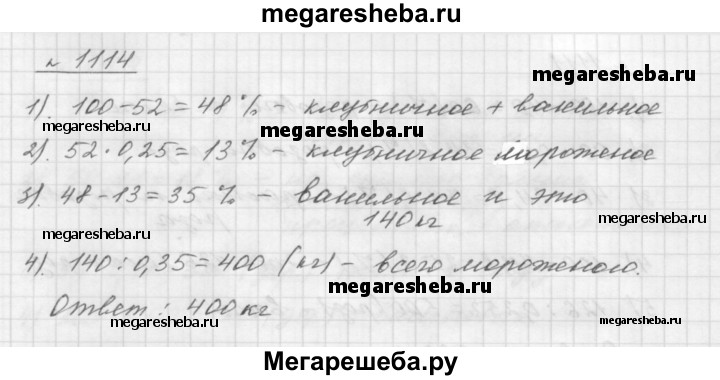 megaresheba.ru
№ 1114
megaresheba.ru
1). 100-52=48% - клубничное + ванильное
megaresheba.ru megaresheba.ru
2). 52·0,25=13% - клубничное мороженое
3). 48-13=35% - ванильное и это
140кг
megaresheba.ru megaresheba.ru
4). 140:0,35=400 (кг) - всего мороженого.
megaresheba.ru
Ответ: 400кг
megaresheba.ru megaresheba.ru
Мегарешеба.ру